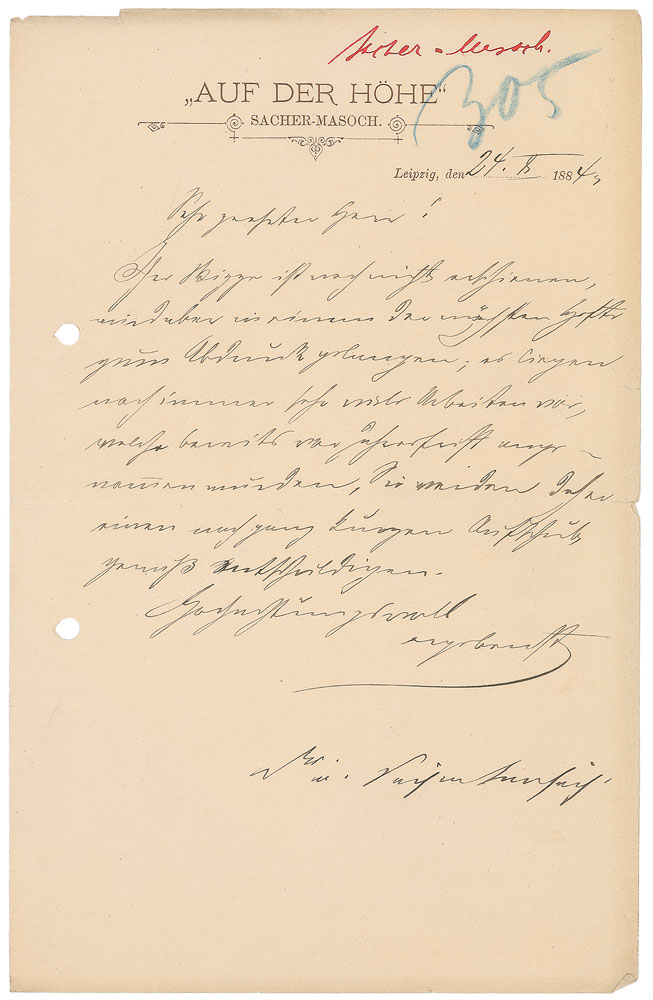 Sacher-Masoch.
305
„AUF DER HÖHE“
SACHER-MASOCH.
Leipzig, den 24. 1884
Sehr geehrter Herr!
Skizze ist noch nicht erschienen,
wird aber in einem der nächsten Hefte
zum Abdruck gelangen; es liegen
noch immer sehr viele Arbeiten vor,
welche bereits vor Jahresfrist ange-
nommen wurden, Sie werden daher
einen noch ganz kurzen Aufschub
gewiß entschuldigen.
Hochachtungsvoll
ergebenst
Sacher Masoch